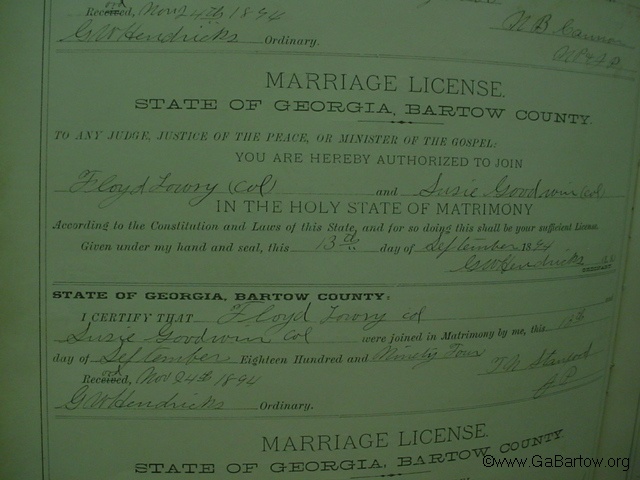 Rec'd, Nov 24th 1894
G W Hendricks Ordinary.
N B Cannon
MARRIAGE LICENSE.
STATE OF GEORGIA, BARTOW COUNTY.
TO ANY JUDGE, JUSTICE OF THE PEACE, OR MINISTER OF THE GOSPEL:
YOU ARE HEREBY AUTHORIZED TO JOIN
Floyd Lowry (Col) and Susie Goodwin (Col)
IN THE HOLY STATE OF MATRIMONY
According to the Constitution and Laws of this State, and for so doing this shall be your sufficient License.
Given under my hand and seal, this 13th day of September 1894
G W Hendricks
STATE OF GEORGIA, BARTOW COUNTY:
I CERTIFY THAT Floyd Lowry col
Susie Goodwin Col were joined in Matrimony by me, this
day of September Eighteen Hundred and Ninety Four
J P
Received, Nov 24th 1894
G W Hendricks Ordinary.
MARRIAGE LICENSE.
STATE OF GEORGIA, BARTOW COUNTY.
©www.GaBartow.org